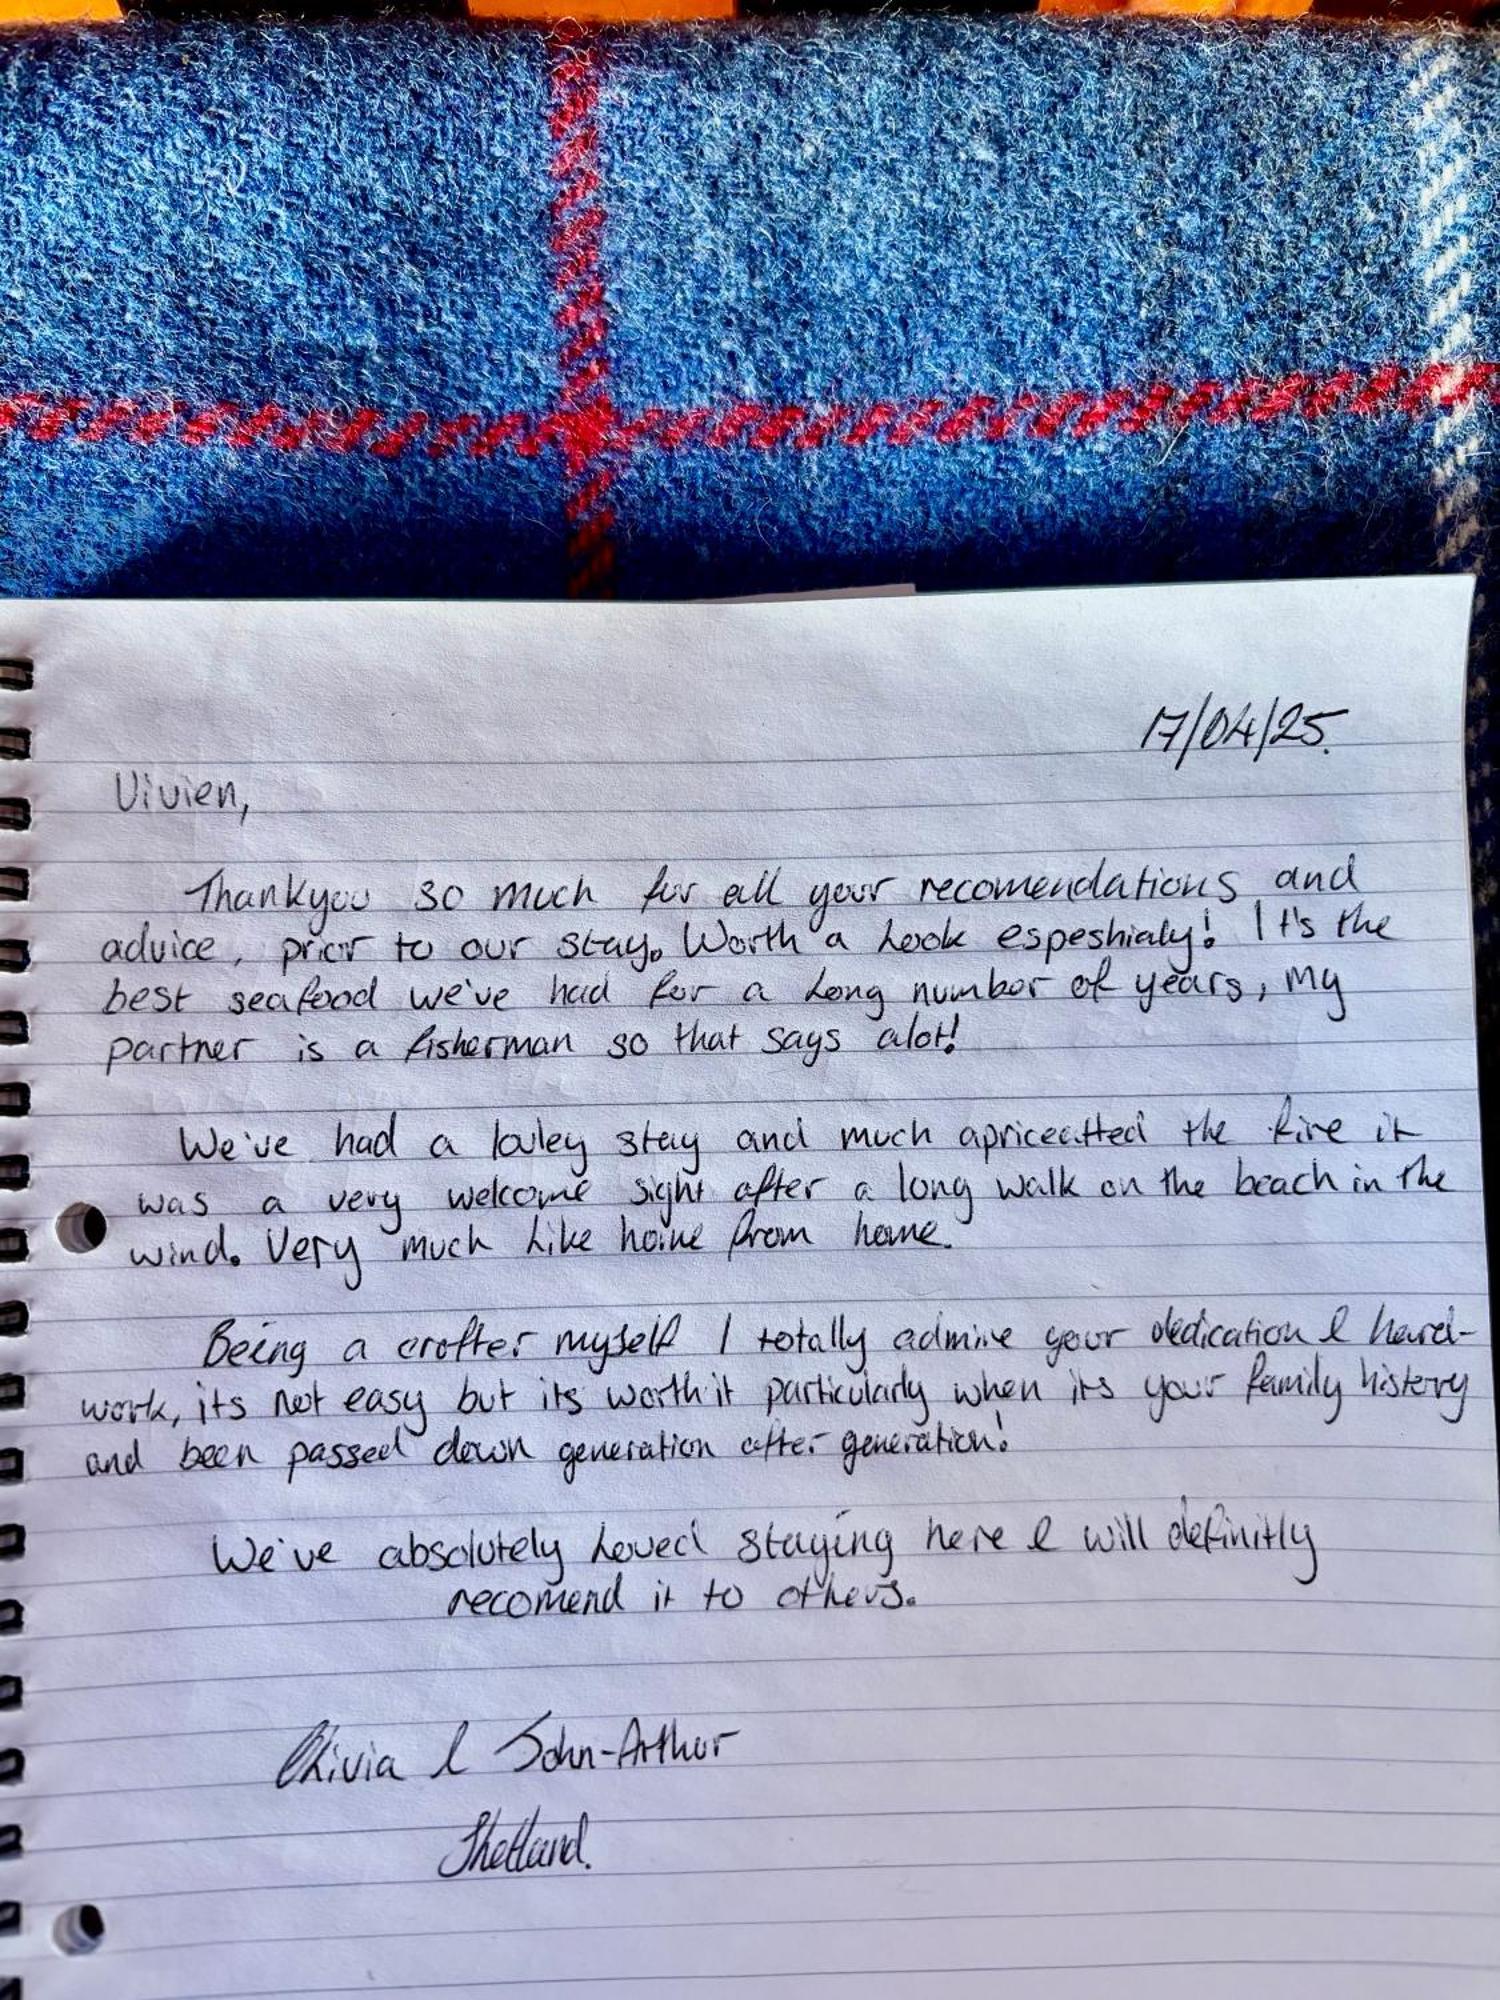 17/04/25.
Vivien,
Thankyou so much for all your recomendations and
advice, prior to our stay. Worth a Look espeshialy! It's the
best seafood we've had for a Long number of years, my
partner is a fisherman so that says alot!
We've had a lovley stay and much apriceatted the fire it
was a very welcome sight after a long walk on the beach in the
wind. Very much Like home from home.
Being a crofter myself I totally admire your dedication & hard-
work, its not easy but its worth it particularly when its your family history
and been passed down generation after generation!
We've absolutely Loved staying here & will definitly
recomend it to others.
Olivia & John-Arthur
Shetland.